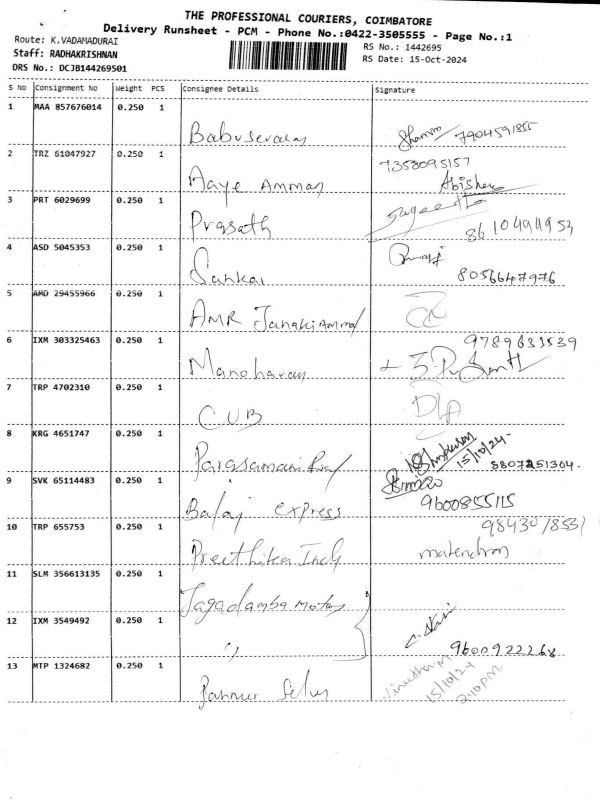 THE PROFESSIONAL COURIERS, COIMBATORE
Delivery Runsheet - PCM - Phone No.:0422-3505555 - Page No.:1
Route: K.VADAMADURAI
RS No.: 1442695
Staff: RADHAKRISHNAN
RS Date: 15-Oct-2024
DRS No.: DCJB144269501
S No Consignment No Weight PCS Consignee Details Signature
1 MAA 857676014 0.250 1
Babuseravan 7904591855
2 TRZ 61047927 0.250 1 7358095157
Aaye Amman Abishek
3 PRT 6029699 0.250 1
Prasath 8610494953
4 ASD 5045353 0.250 1
Sankar 8056647976
5 AMD 29455966 0.250 1
AMR Janakiammal
6 IXM 303325463 0.250 1 9789633539
Manoharan
7 TRP 4702310 0.250 1
CUB
8 KRG 4651747 0.250 1 15/10/24
8807251304.
9 SVK 65114483 0.250 1
Balaji express 9600855115
10 TRP 655753 0.250 1
Preethika Indl
11 SLM 356613135 0.250 1
Jagadamba Motors
12 IXM 3549492 0.250 1
" 9600922268
13 MTP 1324682 0.250 1
15/10/24
2:10 P.M.